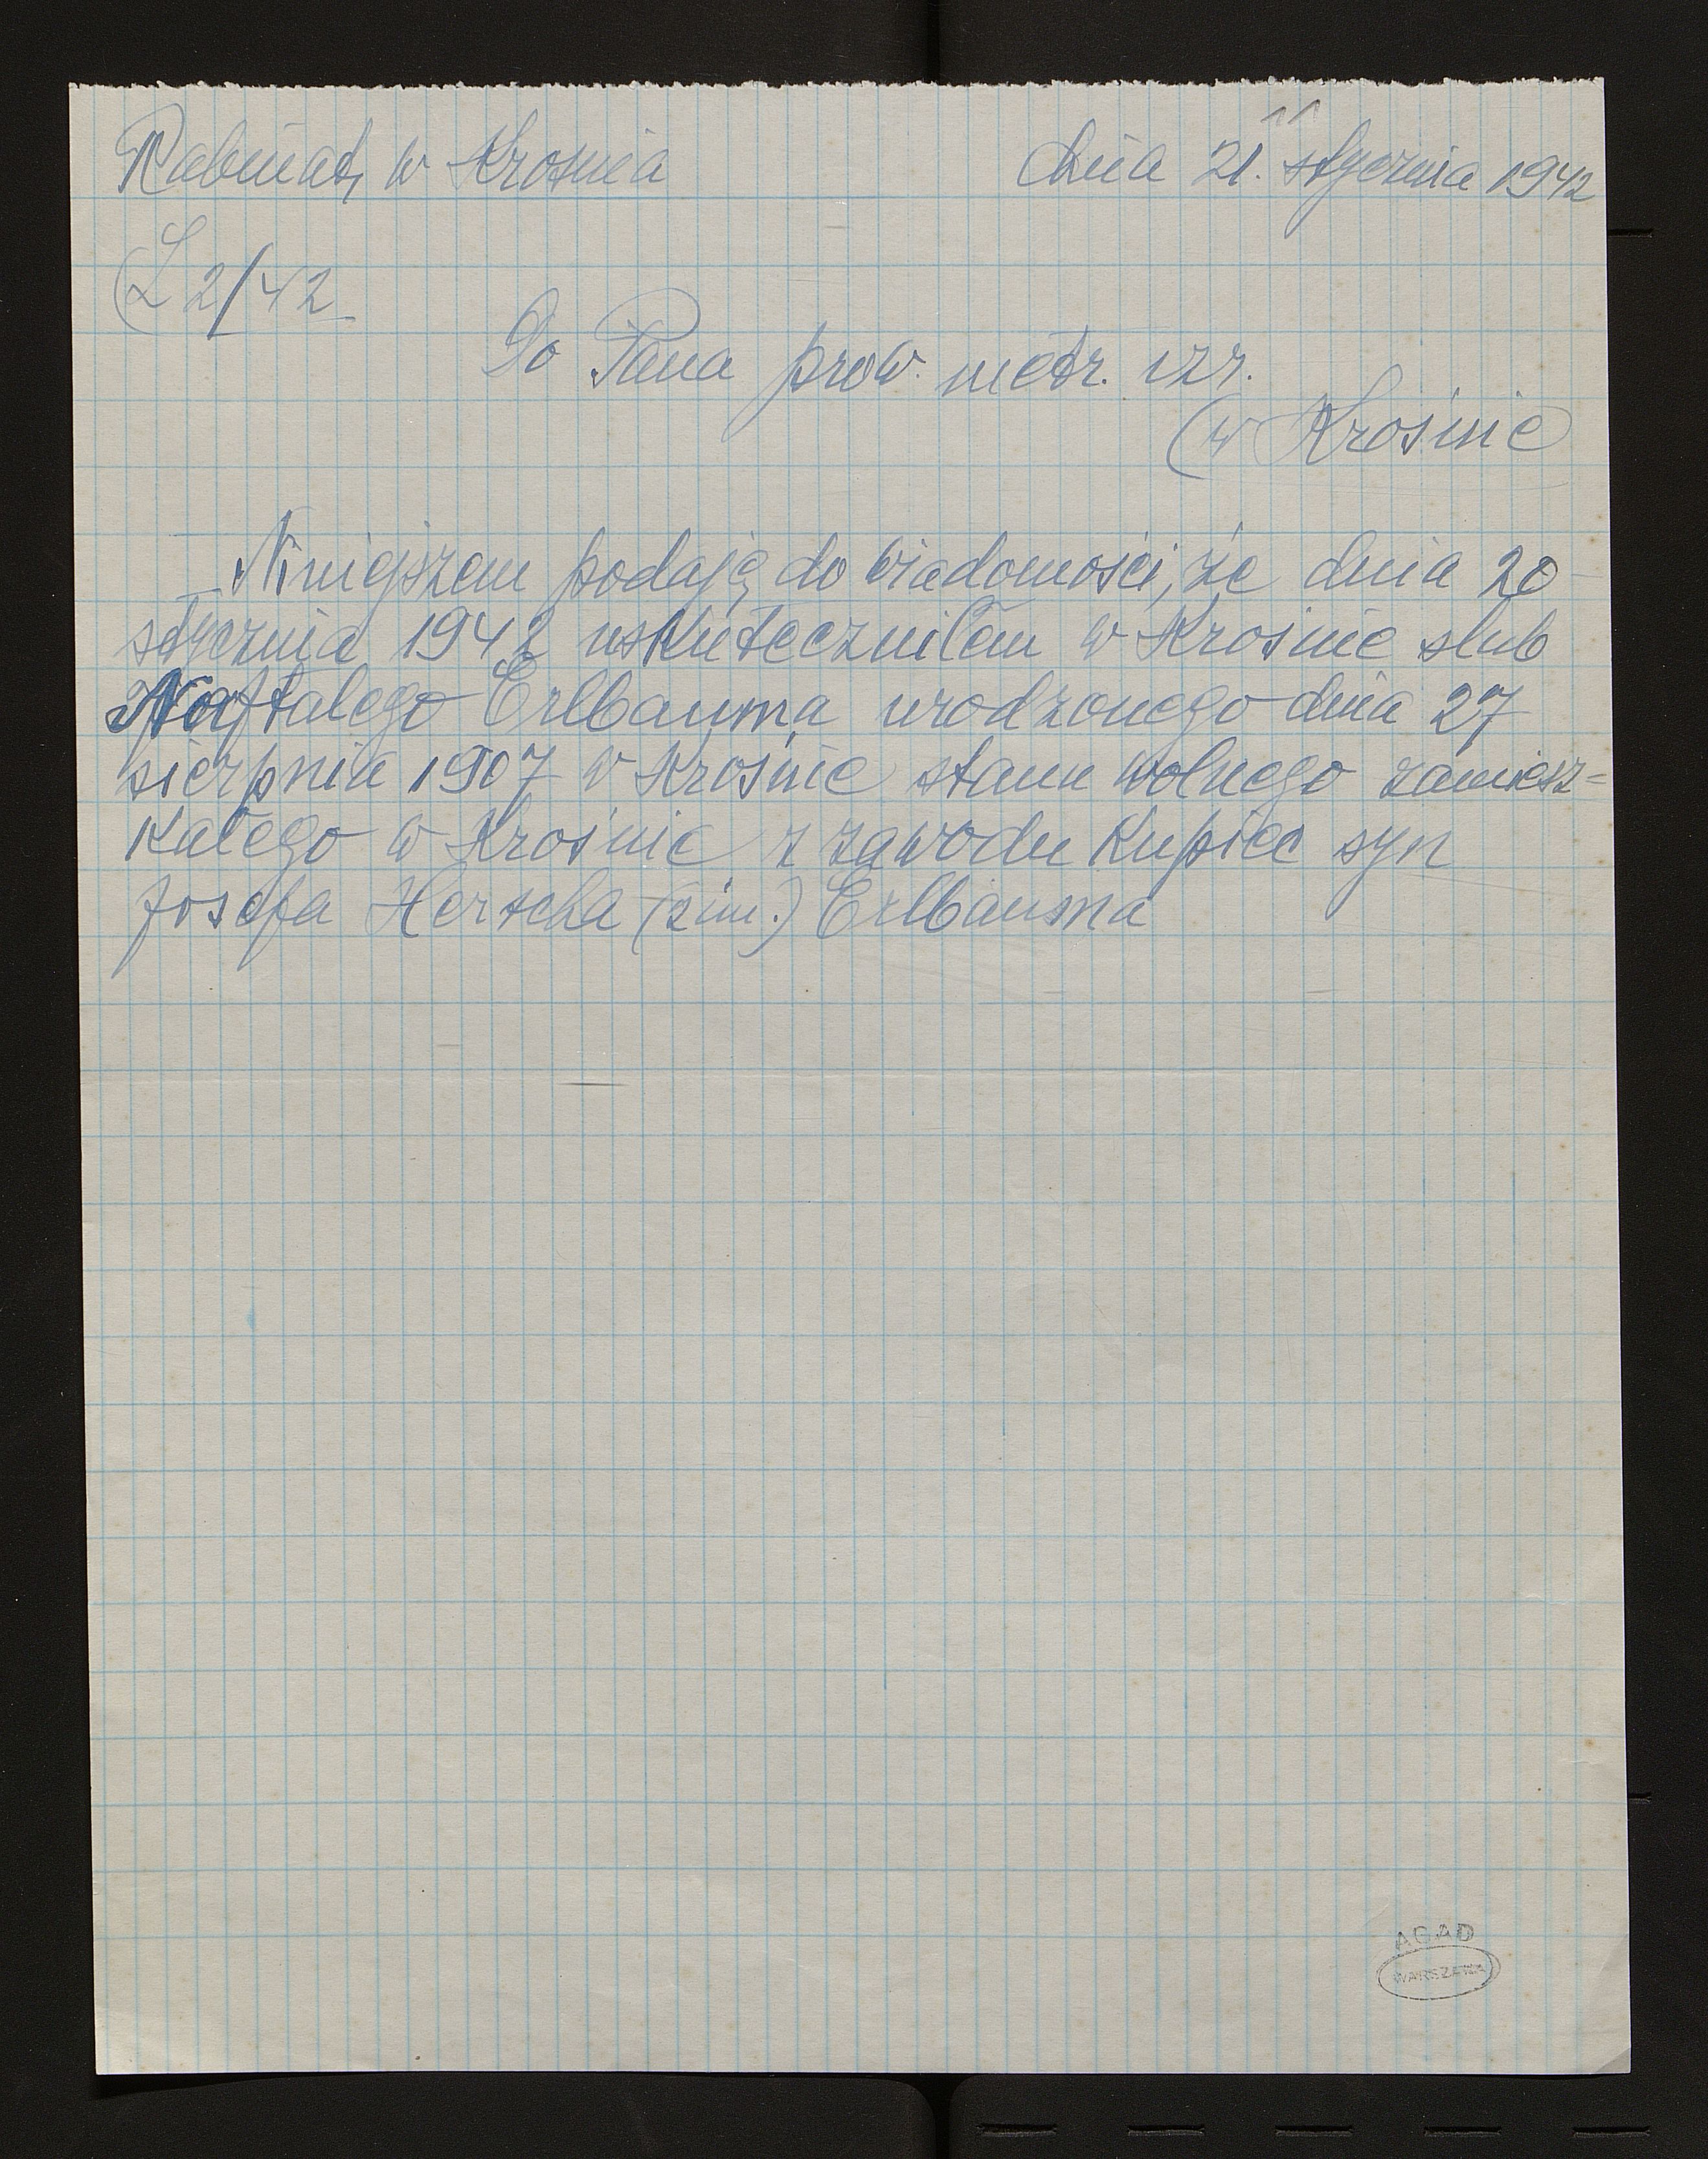 Rabinat w Krosnia dnia 21. stycznia 1942
L 2/42
Do Pana prow. metr. izr.
w Krośnie
Niniejszem podaję do wiadomości, że dnia 20
stycznia 1942 uskuteczniłem w Krośnie ślub
Naftalego Erlbauma urodzonego dnia 27
sierpnia 1907 w Krośnie stanu wolnego zamiesz=
kałego w Krośnie z zawodu kupiec syn
Josefa Herscha (2 im.) Erlbauma
AGAD
WARSZAWA